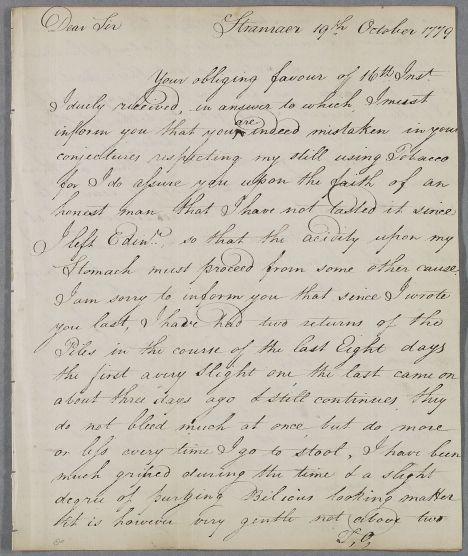 Dear Sir Stranraer 19th October 1779
Your obliging favour of 16th Inst
I duely received, in answer to which, I must
inform you that you are indeed mistaken in your
conjectures respecting my still using Tobacco
for I do assure you upon the faith of an
honest man that I have not tasted it since
I left Edinr, so that the acidity upon my
Stomach must proceed from some other cause.
I am sorry to inform you that since I wrote
you last, I have had two returns of the
Piles in the course of the last Eight days
the first a very Slight one the last came on
about three days ago & still continues they
do not bleed much at once but do more
or less every time I go to stool, I have been
much griped during the time & a slight
degree of purging Bilious looking matter
it is however very gentle not above two